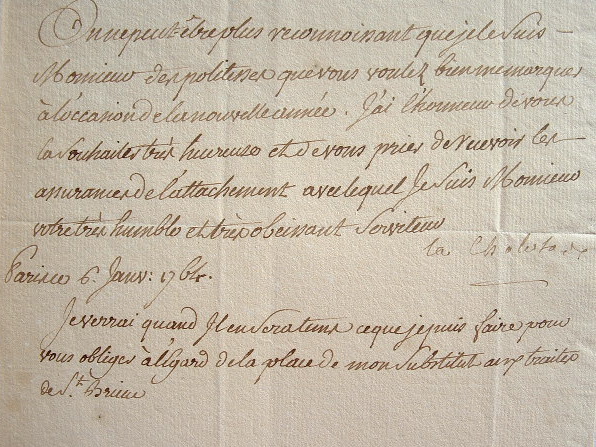 On ne peut être plus reconnoissant que je le suis
Monsieur des politesses que vous voulez bien me marquer
à l'occasion de la nouvelle année. J'ai l'honneur de vous
la souhaiter très heureuse et de vous prier de recevoir les
assurances de l'attachement avec lequel Je suis Monsieur
votre très humble et très obeissant Serviteur
la Chalotais
Paris ce 6. Janv: 1764.
Je verrai quand Il en sera tems ce que je puis faire pour
vous obliger à l'Egard de la place de mon Substitut aux traites
de St. Brieuc